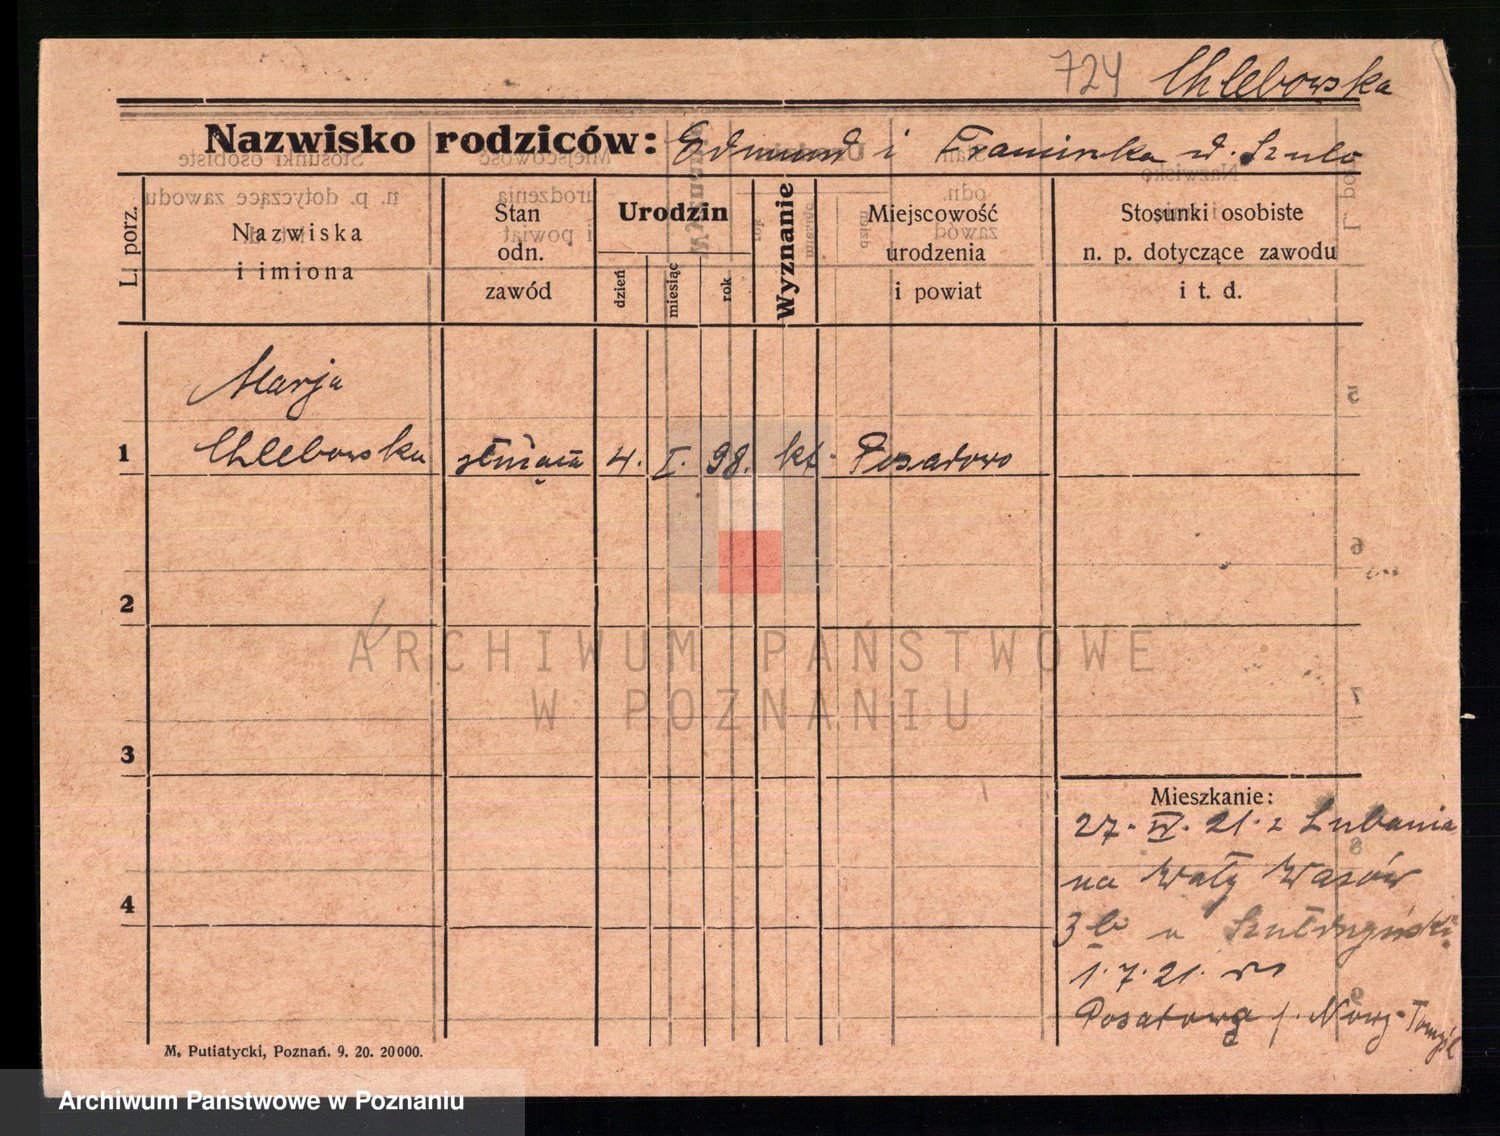 724 Chlebowska
Nazwisko rodziców: Edmund i Franciszka d. Szulc
L. porz.
Nazwiska
i imiona
Stan
odn.
zawód
Urodzin
dzień
miesiąc
rok
Wyznanie
Miejscowość
urodzenia
i powiat
Stosunki osobiste
n. p. dotyczące zawodu
i t. d.
Marja
1 Chlebowska służąca 4. I. 98. kt. Posadowo
2
3
4
ARCHIWUM PAŃSTWOWE
W POZNANIU
Mieszkanie:
27. IV. 21. z Lubania
na Wały Wazów
3b u Szułdrzyński
1.7.21. do
Posadowa p. Nowy-Tomyśl
M. Putiatycki, Poznań. 9. 20. 20000.
Archiwum Państwowe w Poznaniu